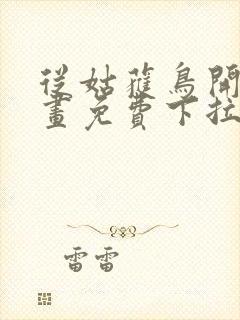 從姑獲鳥開
畫免費下拉
雷雷